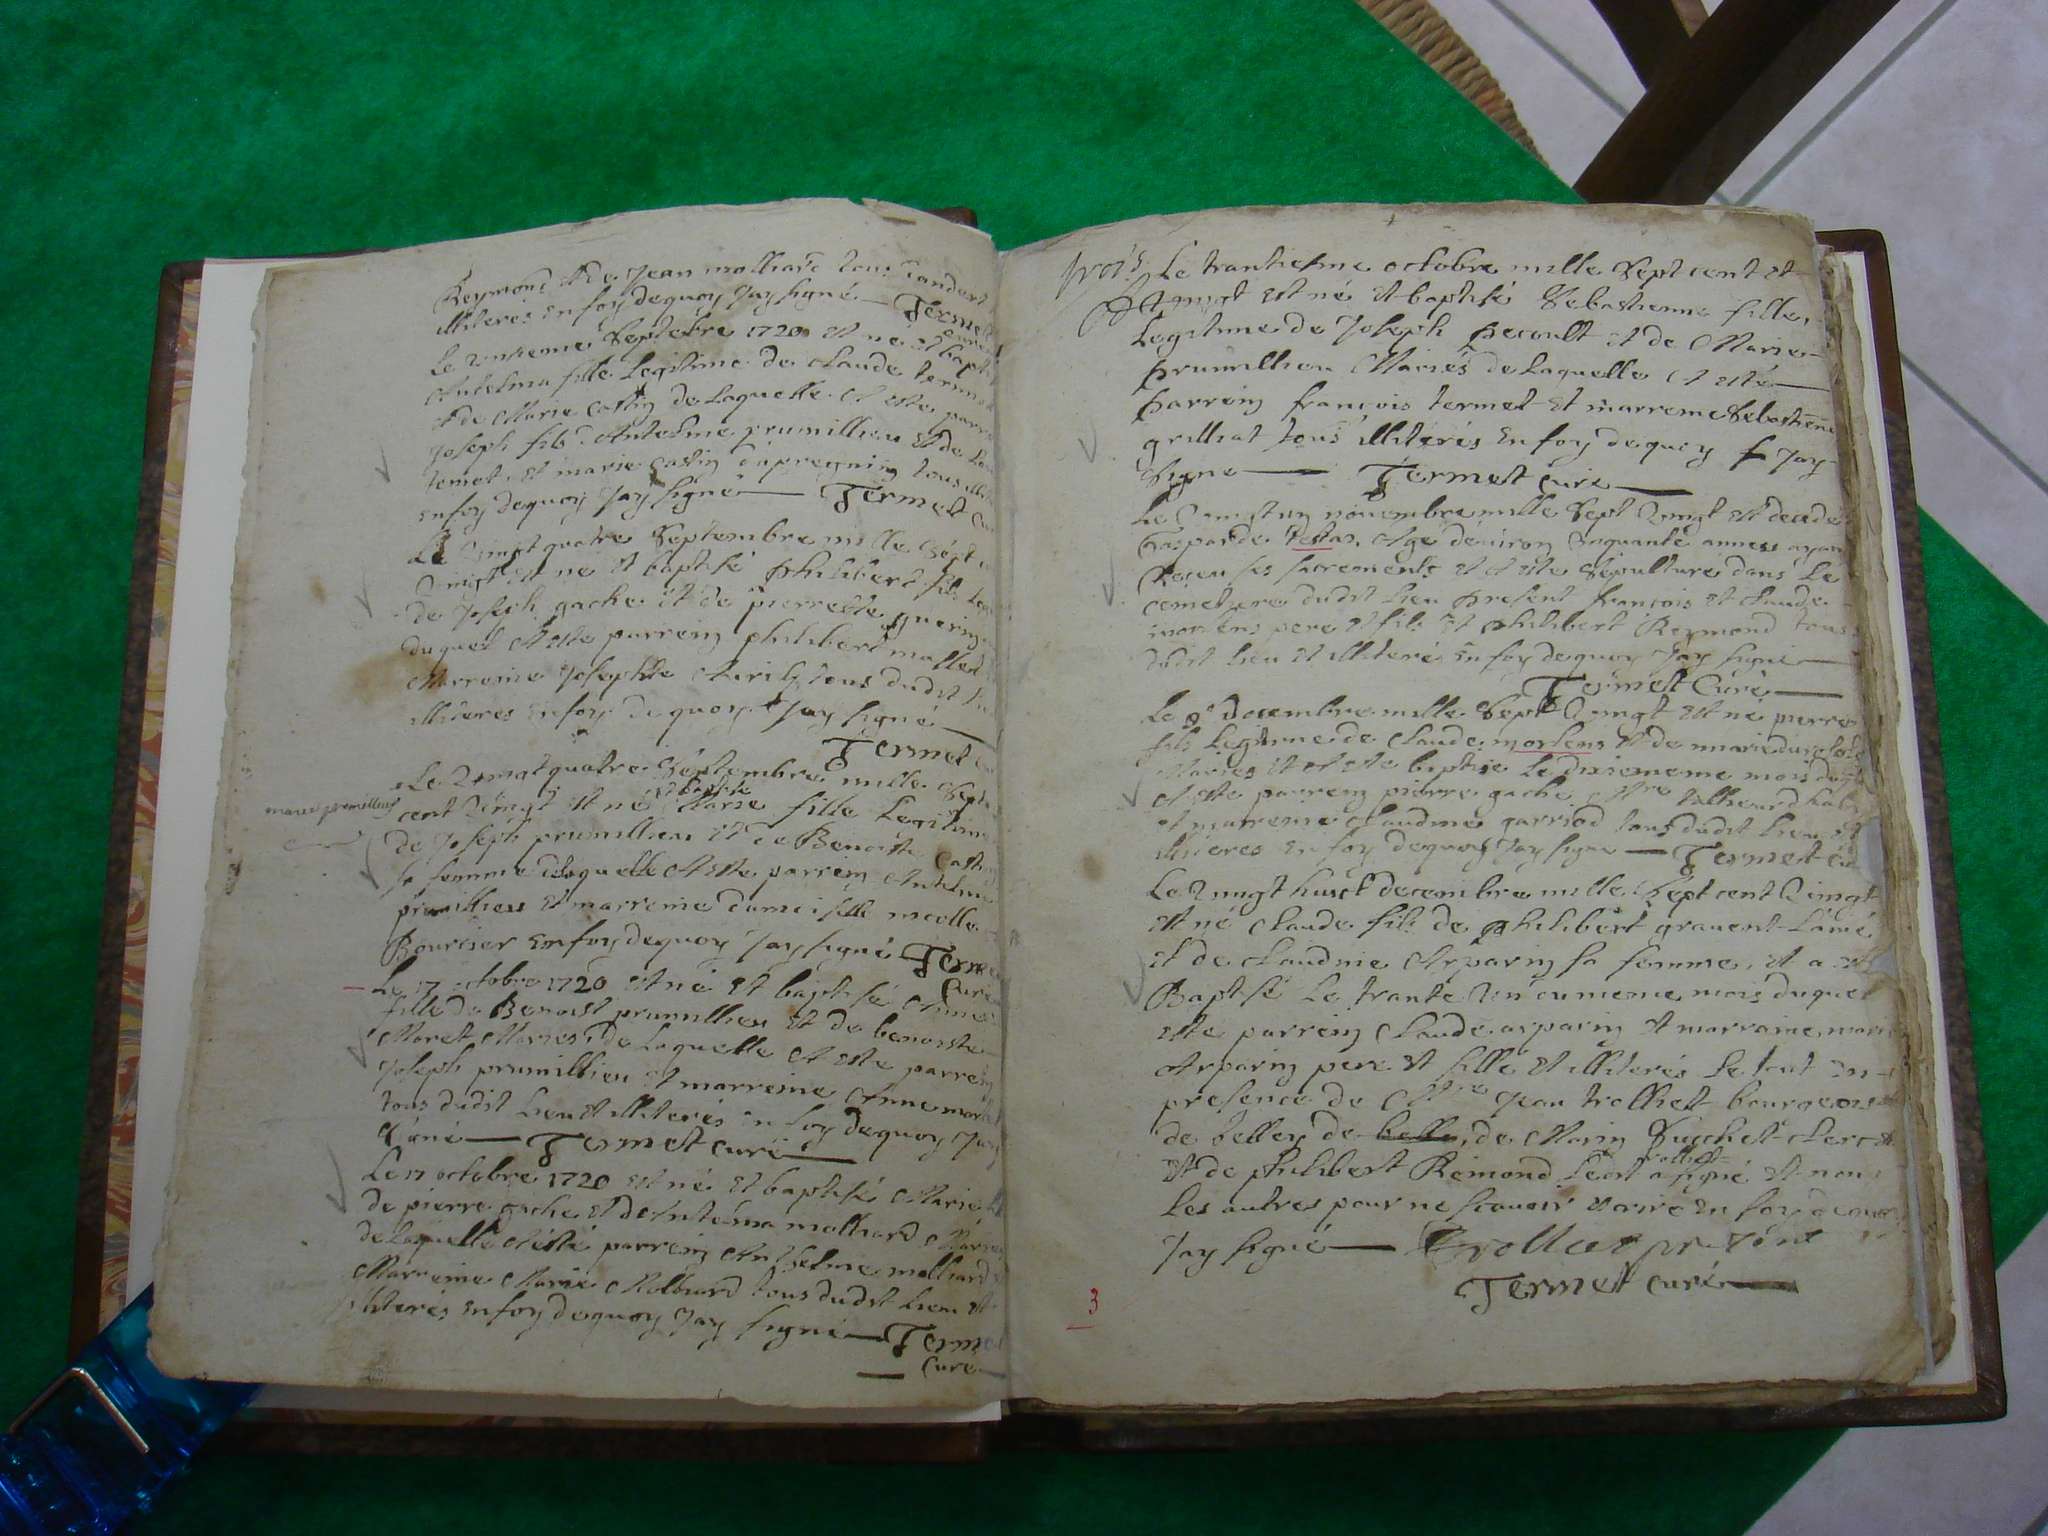 Reymond et de Jean molliard tous
illiteres en foy dequoy Jay signé Terme
Curé
Le onzieme Septebre 1720 est né et bapt
Antelma fille Legitime de Claude terme
et de Marie Castin de Laquelle A este parr
Joseph fils d'Antelme prumillieu et de
temet, et marie Castin tous illi
en foy dequoy Jay signé Termet Cu
Le Vingt quatre Septembre mille Sept
Vingt est né et baptisé philibert fils Leg
de Joseph gache et de pierrette guerin
duquel A este parrein philibert molled
Marreine Josephte tous dudit lieu
illiteres en foy de quoy Jay signé
Termet Cu
Le Vingt quatre Septembre mille Sept
et baptisé
marie premillieu
cent Vingt est né Marie fille Legitime
de Joseph prumillieu et de Benoiste Castin
sa femme de laquelle A este parrein Antelme
prumillieu et marreine damoiselle nicolle
Bourcier en foy dequoy Jay signé Terme
Curé
Le 17 octobre 1720 est né et baptisé Anne
fille de Benoist prumillieu et de benoiste
Moret Maries, de Laquelle A este parrein
Joseph prumillieu et marreine Anne mor
tous dudit Lieu et illiterés en foy dequoy Jay
signé Termet curé
Le 17 octobre 1720 est né et baptisé Marie
de pierre gache et d'Antelma molliard Marie
de laquelle A esté parrein Anthelme molliard
Marreine Marie Molliard tous dudit Lieu et
illiterés en foy dequoy Jay signé Terme
Curé
trois Le trantiesme octobre mille Sept cent et
Vingt est né et baptisé Sebastienne fille
Legitime de Joseph Pecoult et de Marie
prumillieu Mariés de Laquelle A esté
parrein françois termet et marreine Sebastiene
grilliat tous illiterés en foy dequoy Jay
signe Termet Curé
Le Vingt un novembre mille Sept Vingt est decedé
gasparde testas, Age denviron Cinquante annees ayan
Receu ses sacrements et A este Sepulture dans Le
cimetyere dudit Lieu present françois et claude
morlens pere et fils et philibert Reymond tous
dudit Lieu et illiterés en foy dequoy Jay signé
Termet Curé
Le 9e decembre mille Sept Vingt est né pierre
fils Legitime de Claude morlens et de marie
Maries et A este baptisé Le dixieme meme mois
A este parrein pierre gache tallieur d habi
et marreine Claudine garriod tous dudit Lieu et
illiteres en foy dequoy Jay signe Termet Cu
Le Vingt huict decembre mille Sept cent Vingt
est né Claude fils de philibert gravent Lainé
et de Claudine Arparin sa femme, et a est
Baptisé Le trante Un du meme mois duquel
esté parrein Claude arparin et marraine marie
Arparin pere et fille et illiterés le tout en
presence de Mtre Jean trolliett bourgeois
de belley de belley, de Marin Suchet clerc
trolliet
et de philibert Remond Ledit a signé et non
Les autres pour ne scavoir escrire en foy dequoy
Jay signé Trolliet
Termet curé
3